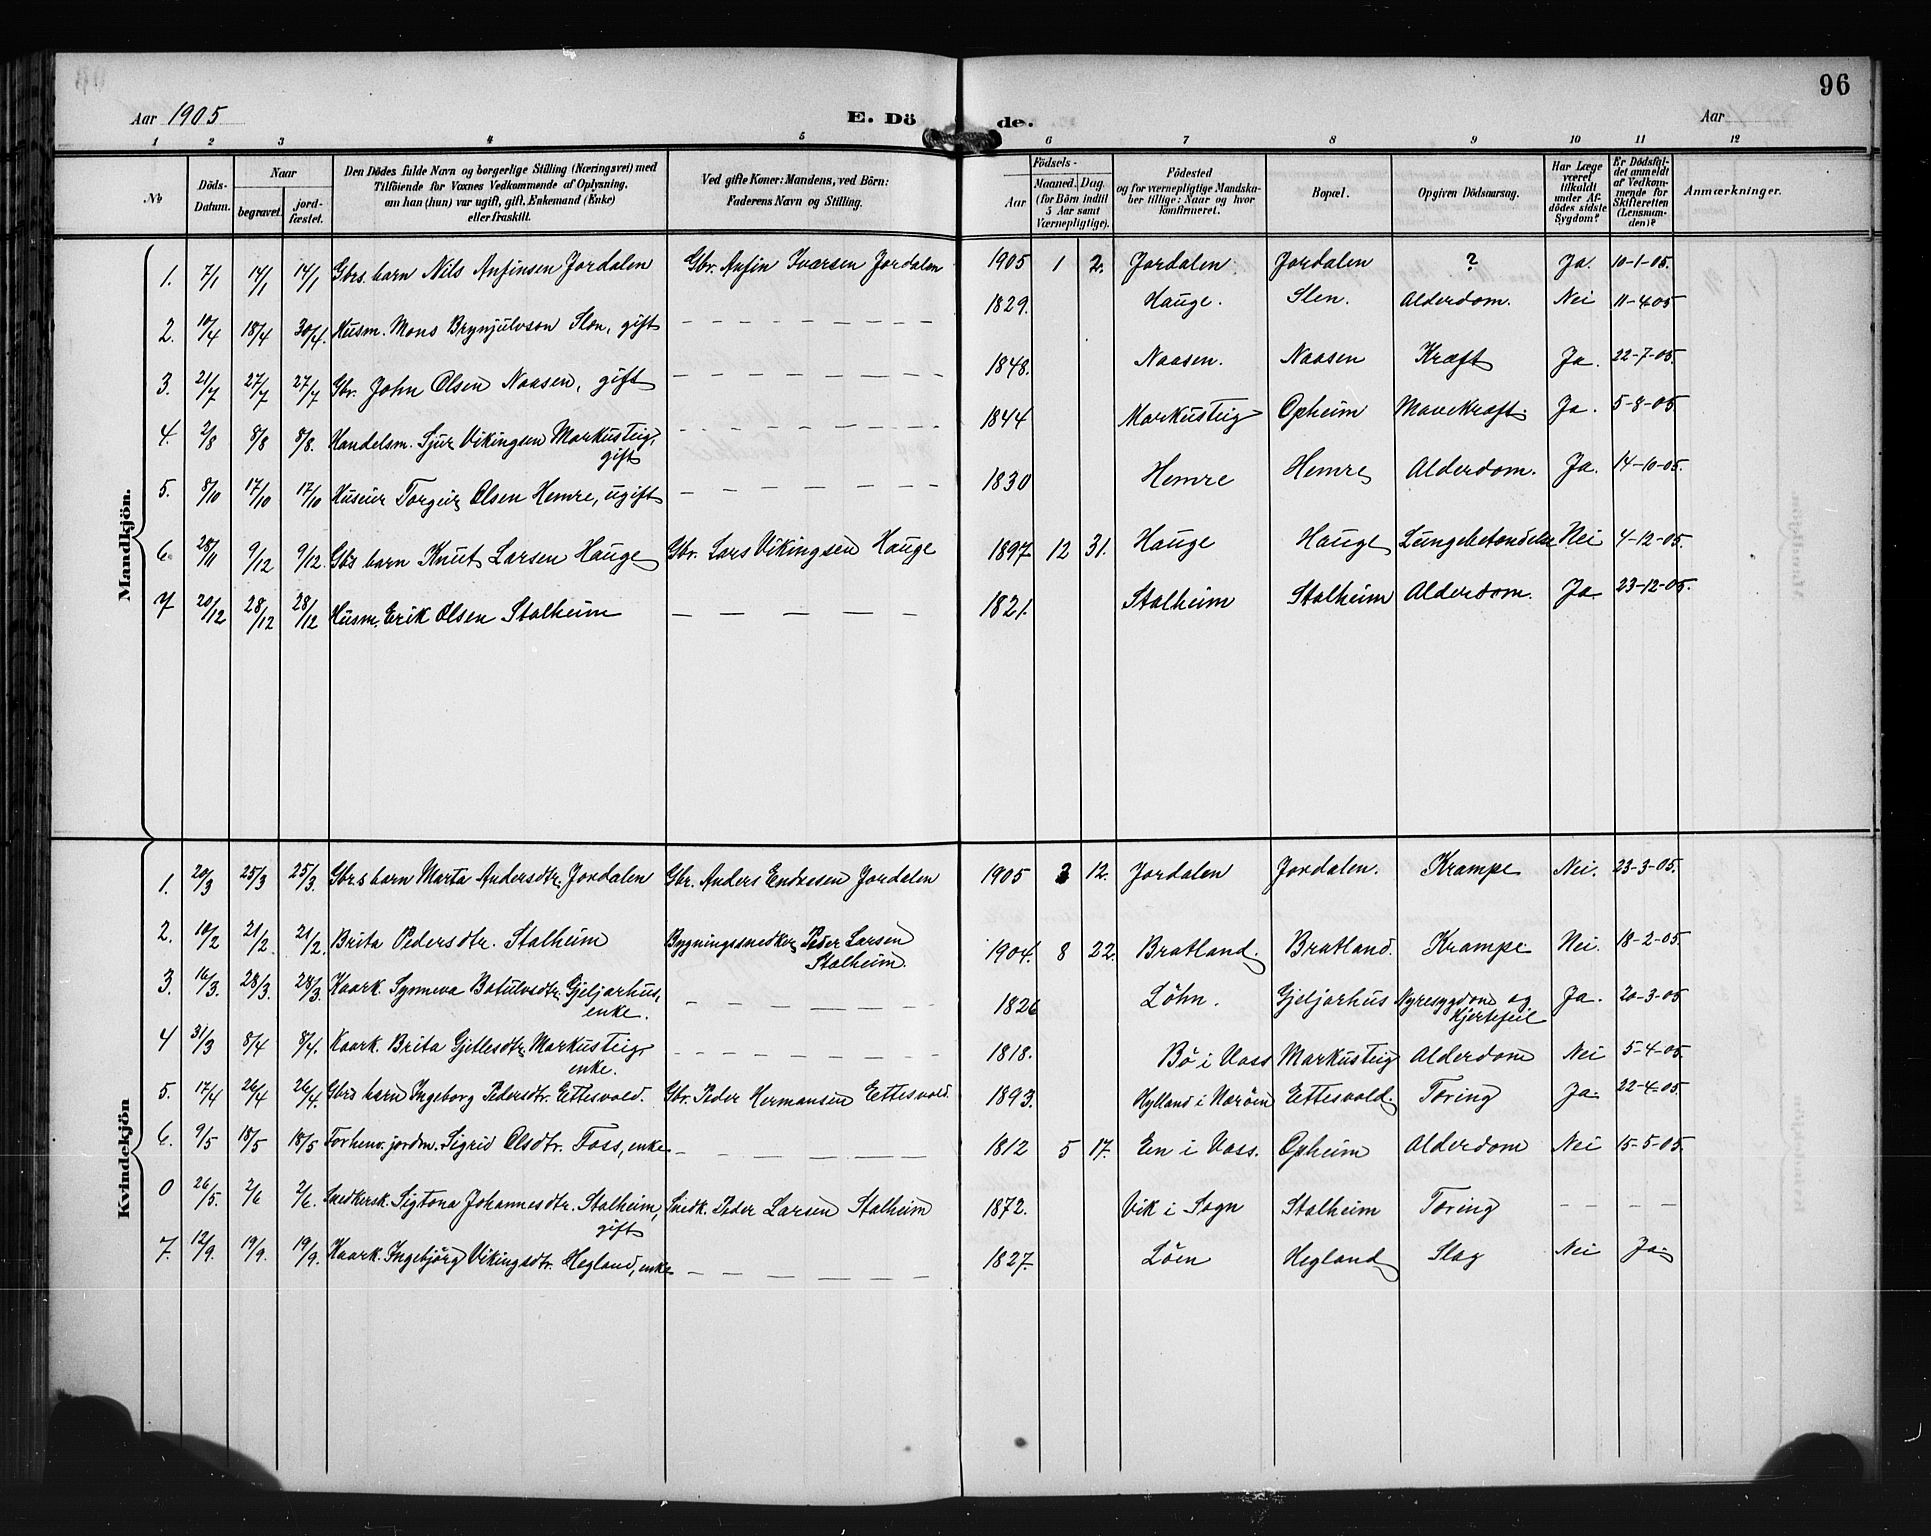 96
Aar 1905 E. Dö de. Aar
1 2 3 4 5 6 7 8 9 10 11 12
No
Döds-Datum.
Naar
begravet. jord-fæstet.
Den Dödes fulde Navn og borgerlige Stilling (Næringsvei) med
Tilföiende for Voxnes Vedkommende af Oplysning,
om han (hun) var ugift, gift, Enkemand (Enke)
eller fraskilt.
Ved gifte Koner: Mandens, ved Börn:
Faderens Navn og Stilling.
Födsels-
Aar Maaned. Dag.
(for Börn indtil
5 Aar samt
Værnepligtige).
Födested
og for værnepligtige Mandska-
ber tillige: Naar og hvor
konfirmeret.
Bopæl.
Opgiven Dödsaarsag.
Har Læge
været
tilkaldt
under Af-
dödes sidste
Sygdom?
Er Dödsfal-
det anmeldt
af Vedkom-
mende for
Skifteretten
(Lensman-
den)?
Anmærkninger.
Mandkjön.
1. 7/1 14/1 14/1 Gbrs. barn Nils Anfinsen Jordalen Gbr. Anfin Ivarsen Jordalen 1905 1 2. Jordalen. Jordalen ? Ja. 10-1-05.
2. 10/4 18/4 30/4. Husm. Mons Brynjulvson Slen, gift — — — 1829. Hauge. Slen. Alderdom. Nei 11-4-05
3. 21/7 27/7 27/7 Gbr. John Olsen Naasen, gift — — — 1848. Naasen. Naasen Kræft Ja. 22-7-05.
4. 2/8 8/8 8/8. Handelsm. Sjur Vikingsen Markusteig, — — — 1844 Markusteig Opheim Mavekræft. Ja. 5-8-05
gift
5. 8/10 17/10 17/10 Torgeir Olsen Hemre, ugift — — — 1830 Hemre Hemre Alderdom. Ja. 14-10-05.
6. 28/11 9/12 9/12. Gbs barn Knut Larsen Hauge Gbr. Lars Vikingsen Hauge 1897 12 31. Hauge Hauge Lungebetændelse Nei 4-12-05.
7 20/12 28/12 28/12 Husm. Erik Olsen Stalheim — — — 1821. Stalheim Stalheim Alderdom. Ja 23-12-05.
Kvindekjön
1. 20/3 25/3 25/3. Gbr.s barn Marta Andersdtr. Jordalen Gbr. Anders Endresen Jordalen 1905 3 12. Jordalen Jordalen. Krampe Nei. 23-3-05.
2. 10/2 21/2. 21/2. Brita Pedersdtr. Stalheim Bygningssnedker Peder Larsen 1904. 8 22. Bratland. Bratland. Krampe Nei. 18-2-05
Stalheim.
3. 16/3. 28/3. 28/3. Kaark. Synneva Botulvsdtr. Gjeljarhus, — — — 1826 Löhn. Gjeljarhus Nyresygdom og Ja. 20-3-05
enke. Hjertefeil
4 31/3 8/4 8/4. Kaark. Brita Gjellesdtr. Markusteig, — — — 1818. Bö i Voss Markusteig Alderdom Nei 5-4-05.
enke.
5. 17/4 26/4 26/4. Gbrs barn Ingeborg Pedersdtr. Ettesvold. Gbr. Peder Hermansen Ettesvold. 1893. Hylland i Næröen Ettesvold. Tæring Ja. 22-4-05.
6. 9/5 18/5 18/5 Forhenv. jordm. Sigrid Olsdtr. Foss, enke — — — 1812 5 17. En i Voss. Opheim Alderdom Nei 15-5-05.
0 26/5. 2/6 2/6. Snedkersk. Sigtona Johannesdtr. Stalheim, Snedk. Peder Larsen Stalheim 1872. Vik i Sogn Stalheim Tæring — — — —
gift
7. 12/9. 19/9. 19/9. Kaark. Ingebjörg Vikingsdtr. Hegland, enke — — — 1827. Löen Hegland Slag Nei Ja.